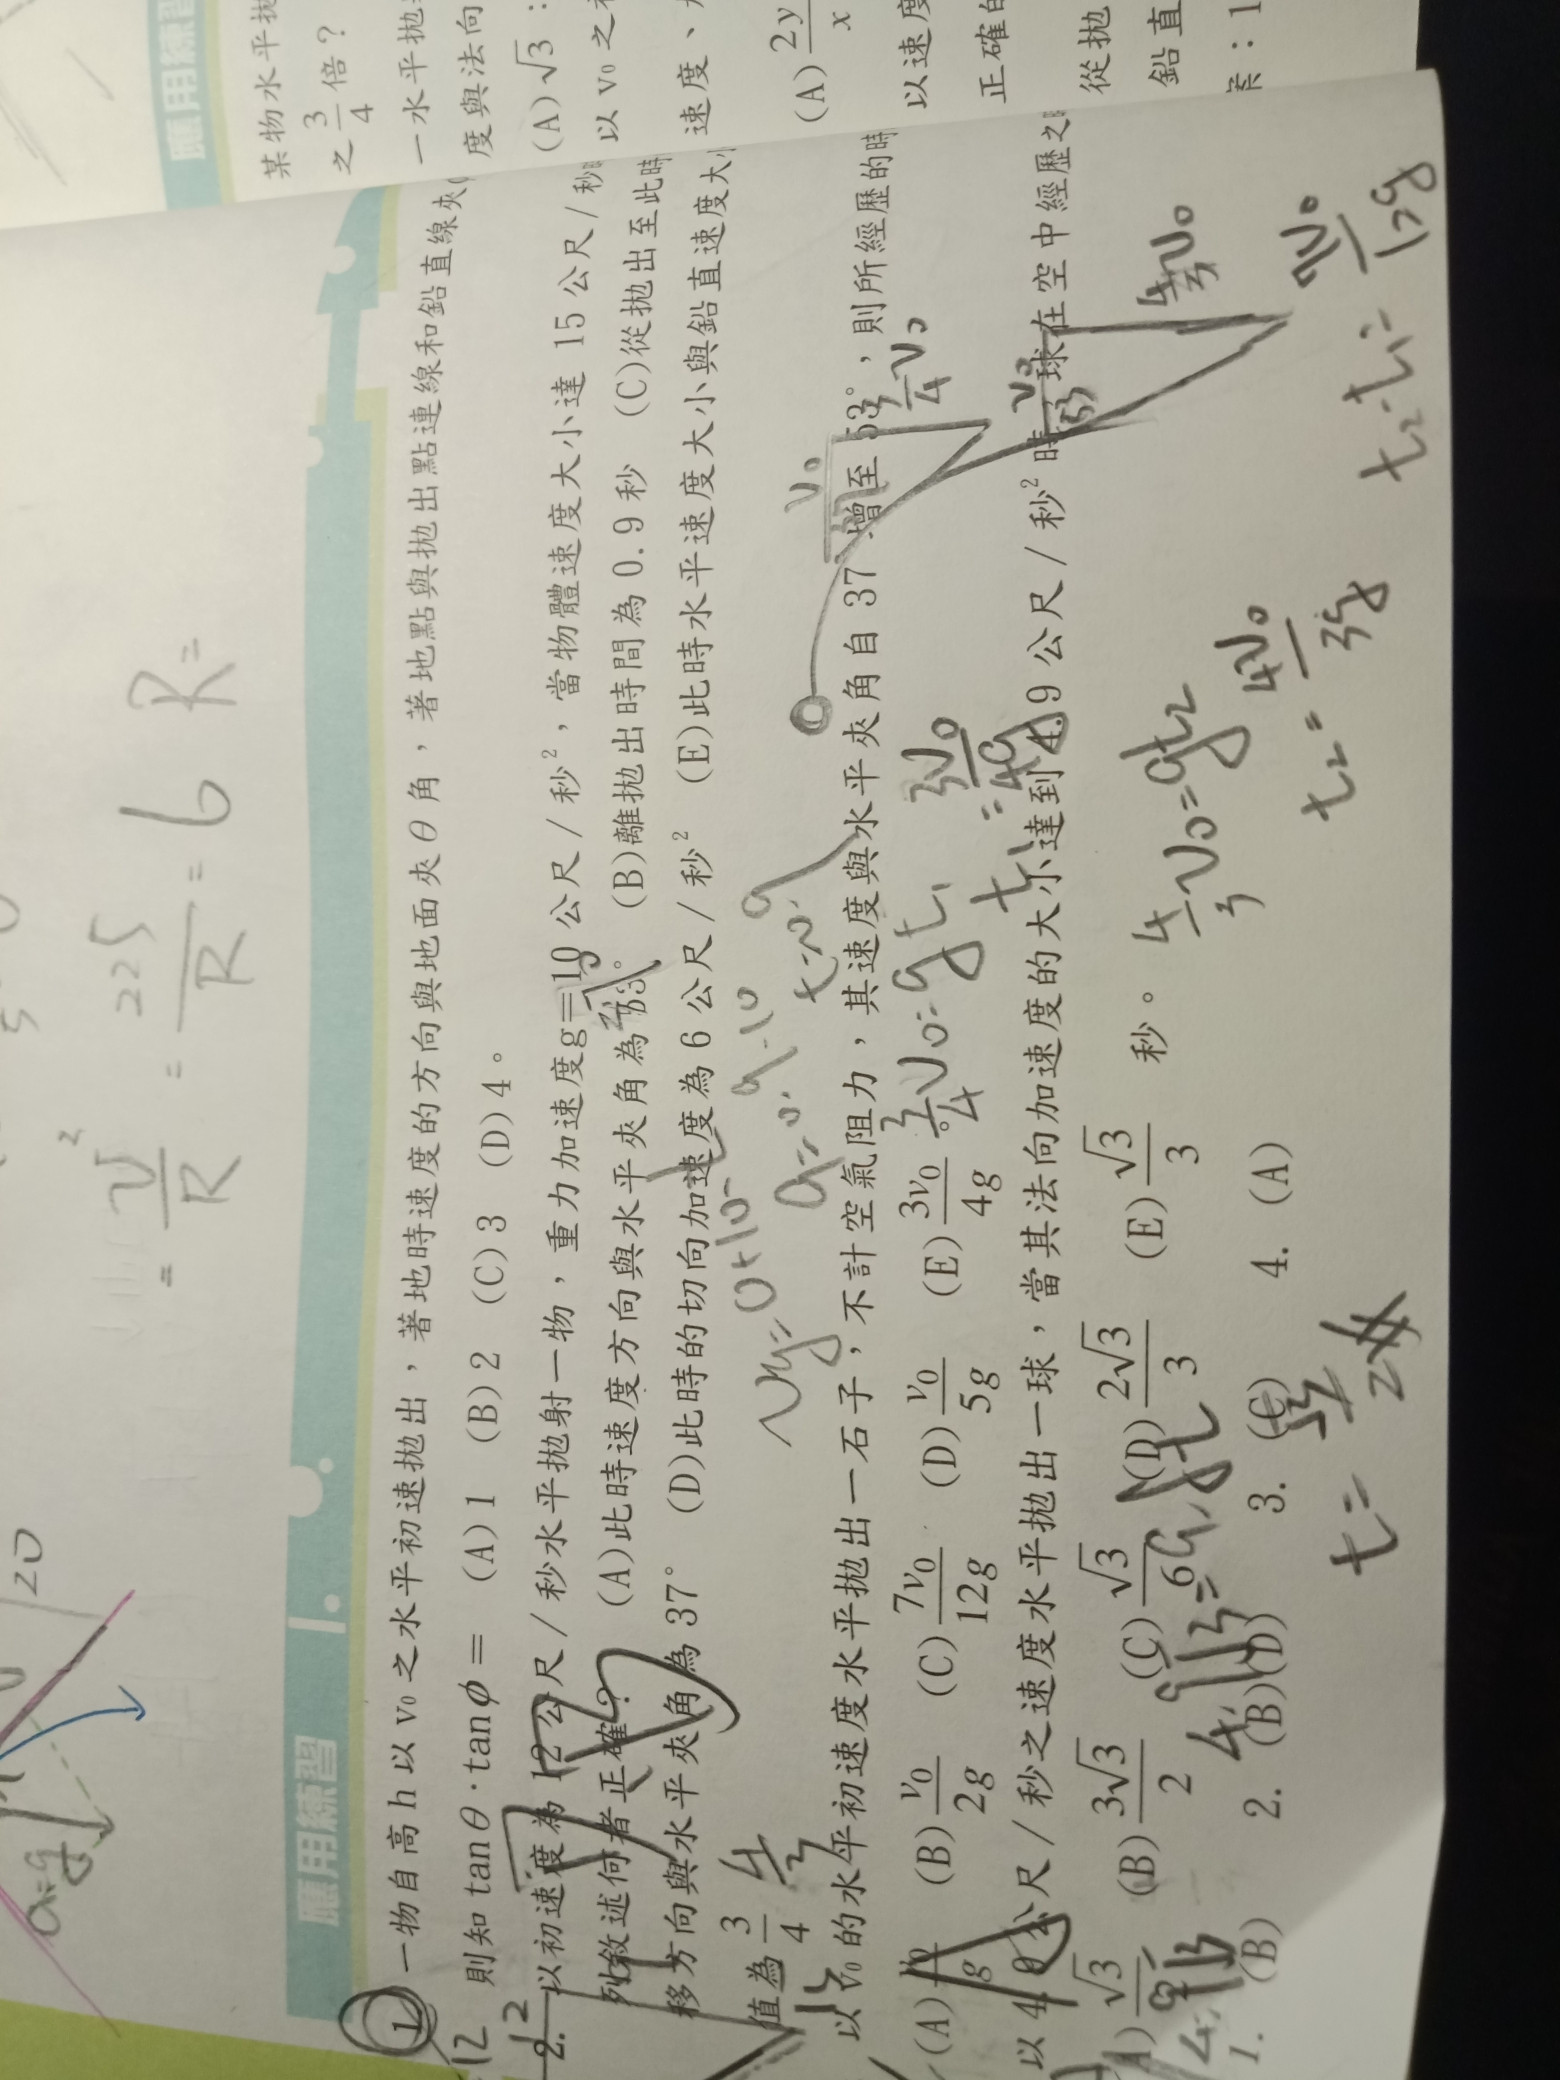 應用練習
某物水平拋
之 3/4 倍？
一水平拋
度與法向
(A)√3：
以 v₀ 之
速度、
(A) 2y/x
以速度
正確的
從拋
鉛直
案：1
20
a=g
= v²/R = 225/R = 6 R=
應用練習 1.
1. 一物自高 h 以 v₀ 之水平初速拋出，著地時速度的方向與地面夾 θ 角，著地點與拋出點連線和鉛直線夾
則知 tanθ·tanφ＝ (A)1 (B)2 (C)3 (D)4。
2. 以初速度為 12 公尺/秒水平拋射一物，重力加速度g=10 公尺/秒²，當物體速度大小達 15 公尺/秒
列敘述何者正確？ (A)此時速度方向與水平夾角為 53° (B)離拋出時間為 0.9 秒 (C)從拋出至此時
移方向與水平夾角為 37° (D)此時的切向加速度為 6 公尺/秒² (E)此時水平速度大小與鉛直速度大小
值為 3/4
Vy=0+10·
9=10
t=0.9
以 v₀ 的水平初速度水平拋出一石子，不計空氣阻力，其速度與水平夾角自 37°增至 53°，則所經歷的時
(A) v₀/g (B) v₀/2g (C) 7v₀/12g (D) v₀/5g (E) 3v₀/4g 。
v₀
3/4 v₀
3/4 v₀=gt₁
t₁= 3v₀/4g
以 4.9 公尺/秒之速度水平拋出一球，當其法向加速度的大小達到 4.9 公尺/秒² 時，球在空中經歷之
(A) √3/2 (B) 3√3/2 (C) √3/6 (D) 2√3/3 (E) √3/3 秒。
v₀
4/3 v₀
4/3 v₀=gt₂
t₂= 4v₀/3g
t₂-t₁= 7v₀/12g
1. (B) 2. (B)(D) 3. (C) 4. (A)
t=